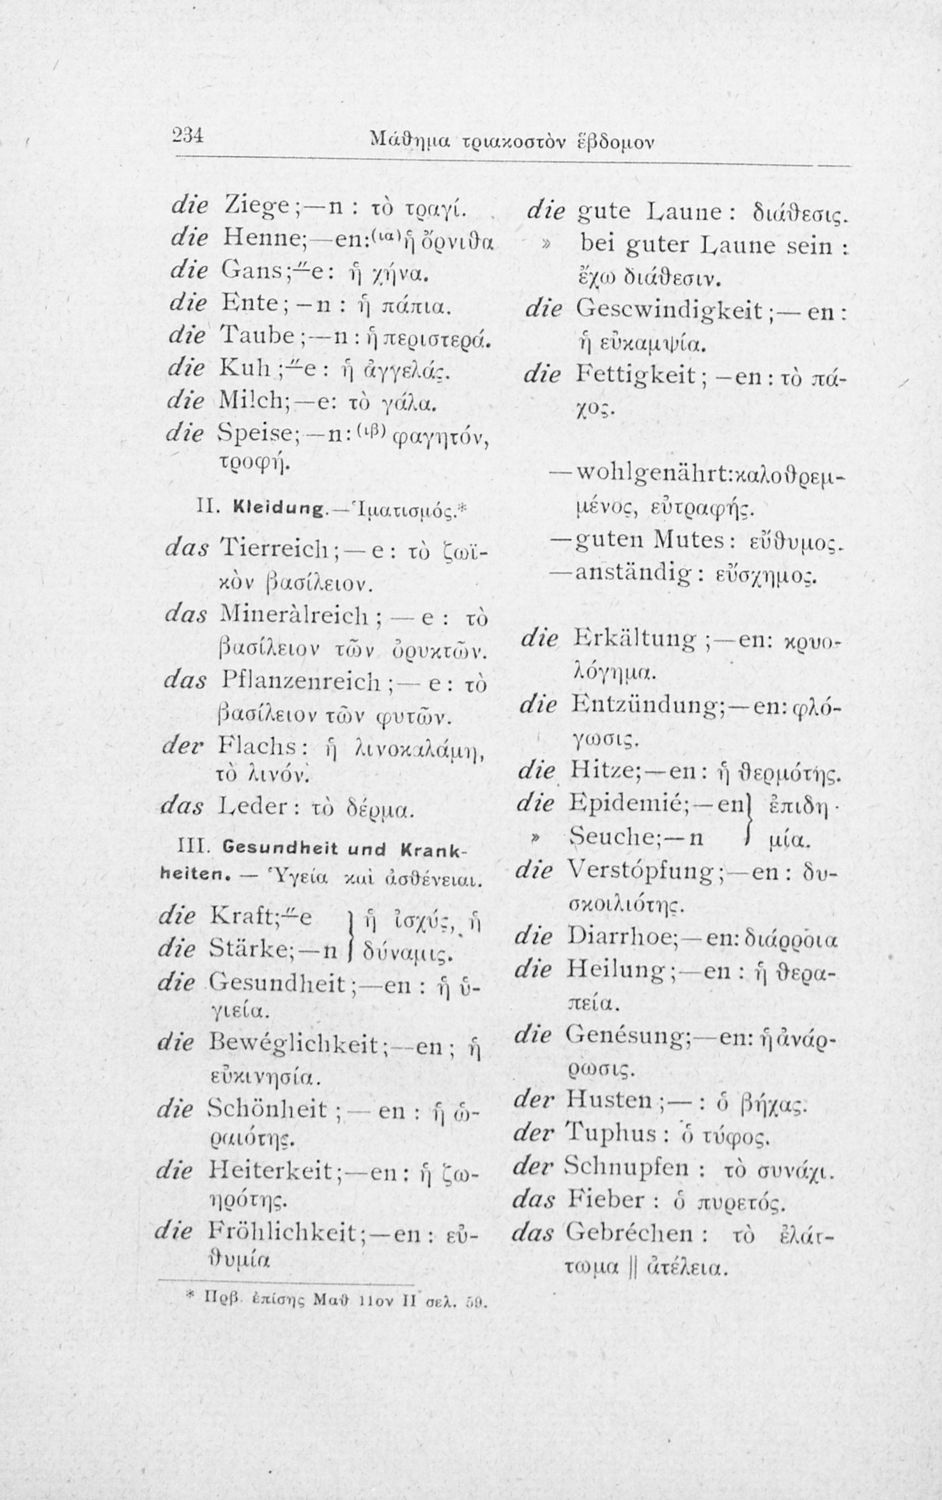 234
Μάθημα τριακοστὸν ἕβδομον
die Ziege;—n : τὸ τραγί.
die Henne;—en:(ια)ἡ ὄρνιθα
die Gans;—̈e: ἡ χήνα.
die Ente;—n : ἡ πάπια.
die Taube;—n : ἡ περιστερά.
die Kuh;—̈e : ἡ ἀγγελάς.
die Milch;—e: τὸ γάλα.
die Speise;—n:(ιβ) φαγητόν,
τροφή.
II. Kleidung.—Ἱματισμός.*
das Tierreich;—e : τὸ ζωϊ-
κὸν βασίλειον.
das Mineràlreich ; — e : τὸ
βασίλειον τῶν ὀρυκτῶν.
das Pflanzenreich ;— e : τὸ
βασίλειον τῶν φυτῶν.
der Flachs : ἡ λινοκαλάμη,
τὸ λινόν.
das Leder : τὸ δέρμα.
III. Gesundheit und Krank-
heiten. — Ὑγεία καὶ ἀσθένειαι.
die Kraft;—̈e } ἡ ἰσχύς, ἡ
die Stärke;—n } δύναμις.
die Gesundheit;—en : ἡ ὑ-
γιεία.
die Bewéglichkeit;—en ; ἡ
εὐκινησία.
die Schönheit ; — en : ἡ ὡ-
ραιότης.
die Heiterkeit;—en : ἡ ζω-
ηρότης.
die Fröhlichkeit;—en : εὐ-
θυμία
* Πρβ. ἐπίσης Μαθ 11ον II σελ. 59.
die gute Laune : διάθεσις.
» bei guter Laune sein :
ἔχω διάθεσιν.
die Gescwindigkeit ;— en :
ἡ εὐκαμψία.
die Fettigkeit ; —en : τὸ πά-
χος.
—wohlgenährt:καλοθρεμ-
μένος, εὐτραφής.
—guten Mutes : εὔθυμος.
—anständig : εὔσχημος.
die Erkältung ;—en: κρυο-
λόγημα.
die Entzündung;—en: φλό-
γωσις.
die Hitze;—en : ἡ θερμότης.
die Epidemié;—en } ἐπιδη-
» Seuche;—n } μία.
die Verstópfung;—en : δυ-
σκοιλιότης.
die Diarrhoe;—en: διάρροια
die Heilung;—en : ἡ θερα-
πεία.
die Genésung;—en: ἡ ἀνάρ-
ρωσις.
der Husten ;— : ὁ βήχας.
der Tuphus : ὁ τύφος.
der Schnupfen : τὸ συνάχι.
das Fieber : ὁ πυρετός.
das Gebréchen : τὸ ἐλάτ-
τωμα || ἀτέλεια.